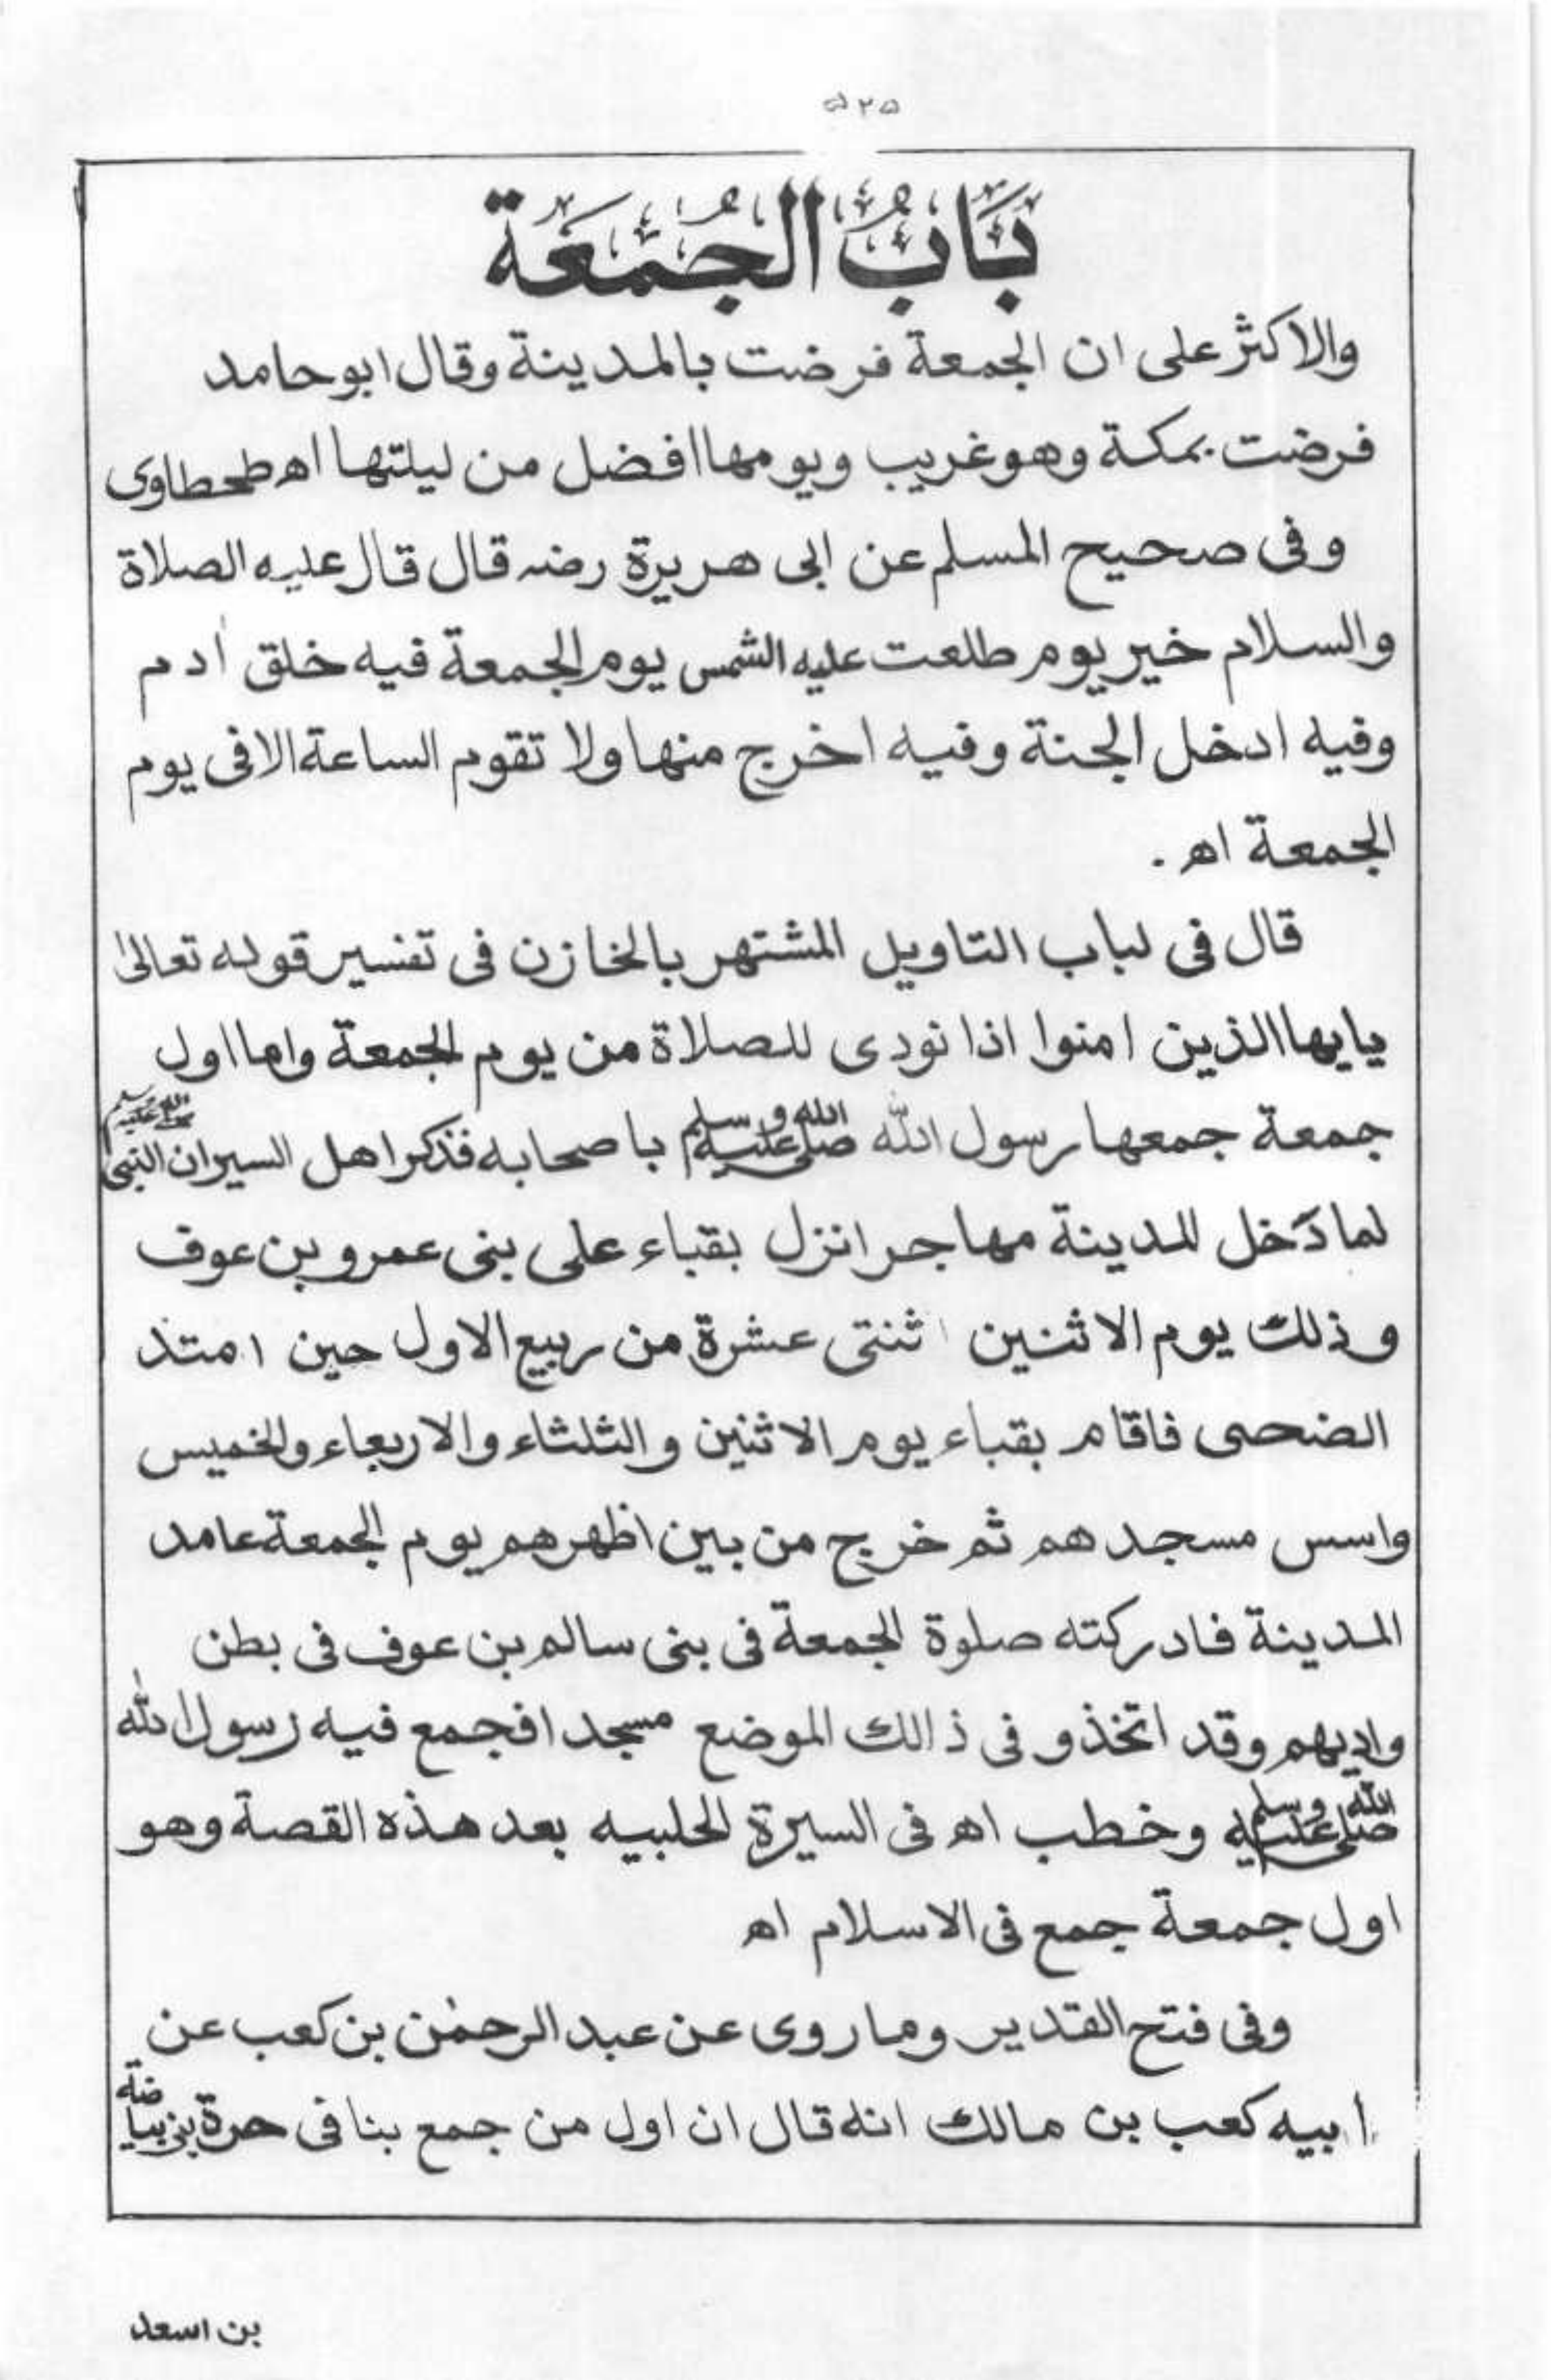 ٥٢٥
بَابُ الجُمَعَة
والاكثر على ان الجمعة فرضت بالمدينة وقال ابو حامد
فرضت بمكة وهو غريب ويومها افضل من ليلتها اه طحطاوى
وفى صحيح المسلم عن ابى هريرة رضه قال قال عليه الصلاة
والسلام خير يوم طلعت عليه الشمس يوم الجمعة فيه خلق أدم
وفيه ادخل الجنة وفيه اخرج منها ولا تقوم الساعة الا فى يوم
الجمعة اه .
قال فى لباب التاويل المشتهر بالخازن فى تفسير قوله تعالىٰ
يايها الذين امنوا اذا نودى للصلاة من يوم الجمعة واما اول
جمعة جمعها رسول الله صلى الله عليه وسلم باصحابه فذكر اهل السير ان النبى صلى الله عليه وسلم
لما دَخل المدينة مهاجرا نزل بقباء على بنى عمرو بن عوف
وذلك يوم الاثنين اثنتى عشرة من ربيع الاول حين امتد
الضحى فاقام بقباء يوم الاثنين والثلثاء والاربعاء والخميس
واسس مسجدهم ثم خرج من بين اظهرهم يوم الجمعة عامد
المدينة فادركته صلوة الجمعة فى بنى سالم بن عوف فى بطن
واديهم وقد اتخذو فى ذالك الموضع مسجدا فجمع فيه رسول الله
صلى الله عليه وسلم وخطب اه فى السيرة الحلبيه بعد هذه القصة وهو
اول جمعة جمع فى الاسلام اه
وفى فتح القدير وما روى عن عبد الرحمٰن بن كعب عن
ابيه كعب بن مالك انه قال ان اول من جمع بنا فى حرة بنى بياضة
بن اسعد